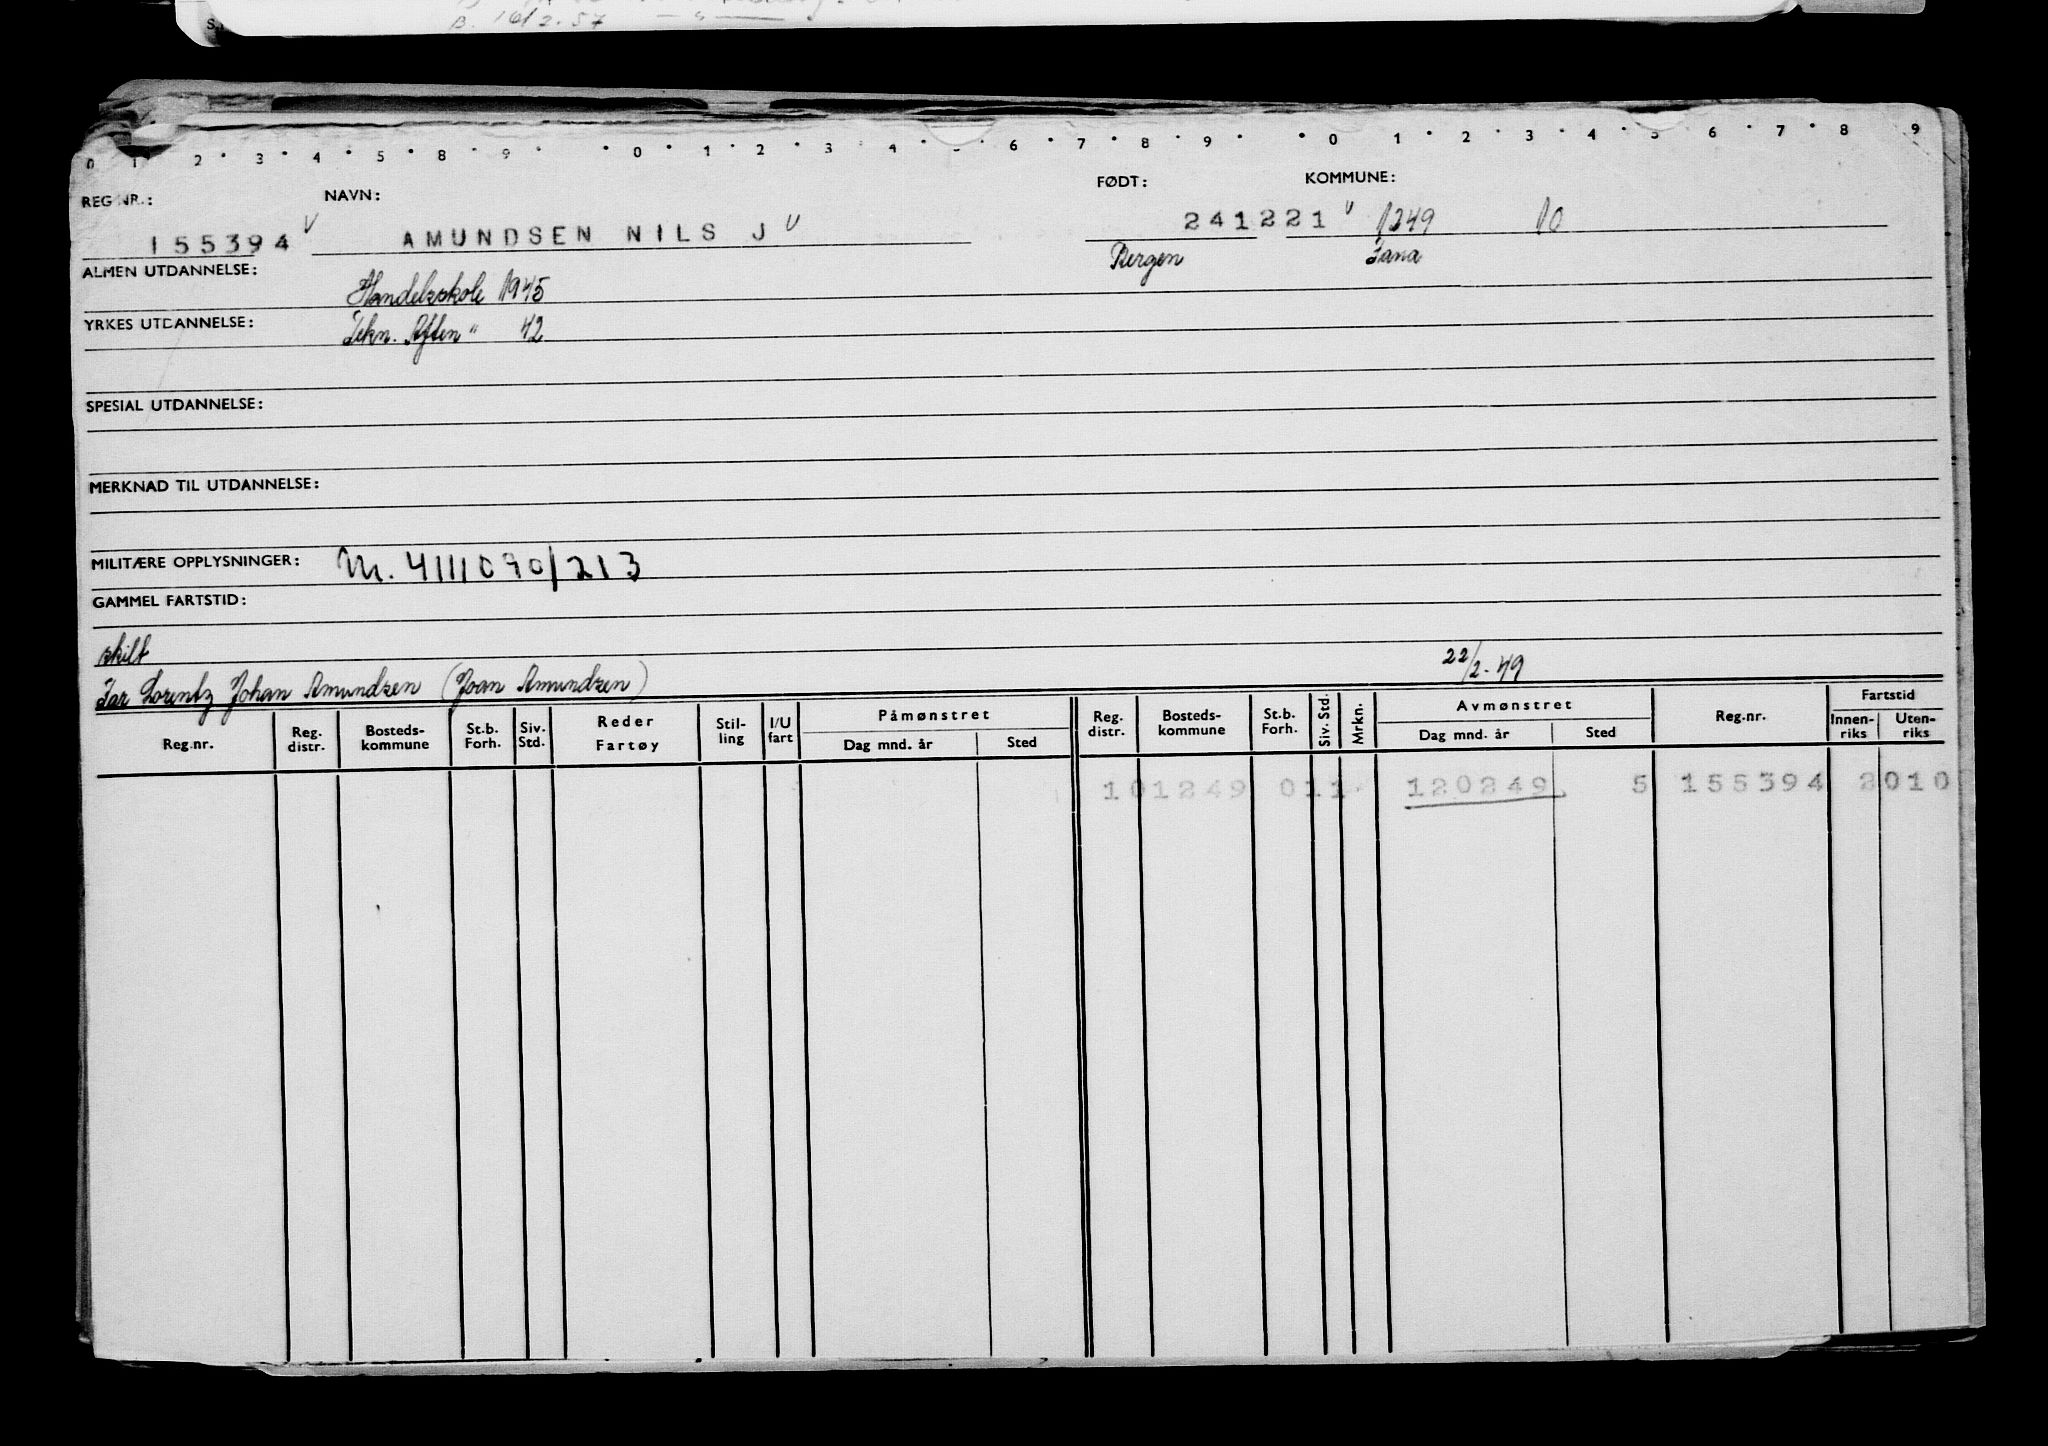 B. 16/2.57 — " —
0 1 2 • 3 • 4 • 5 • 8 • 9 • • 0 • 1 • 2 • 3 • 4 • 5 • 6 • 7 • 8 • 9 • • 0 • 1 • 2 • 3 • 4 • 5 • 6 • 7 • 8 9
REG NR.: NAVN: FØDT: KOMMUNE:
155394 V AMUNDSEN NILS J V 241221 V 1249 10
ALMEN UTDANNELSE: Handelsskole 1945 Bergen Fana
YRKES UTDANNELSE: Tekn. Aften " 42
SPESIAL UTDANNELSE:
MERKNAD TIL UTDANNELSE:
MILITÆRE OPPLYSNINGER: M. 4111070/213
GAMMEL FARTSTID:
skilt
Far Lorentz Johan Amundsen (Joan Amundsen) 22/2-49
Reg.nr. Reg. distr. Bosteds-kommune St.b. Forh. Siv. Std. Reder Fartøy Stil-ling I/U fart Påmønstret Dag mnd. år Sted Reg. distr. Bosteds-kommune St.b. Forh. Siv. Std. Mrkn. Avmønstret Dag mnd. år Sted Reg.nr. Fartstid Innen-riks Uten-riks
10 1249 011 120249 5 155394 2010